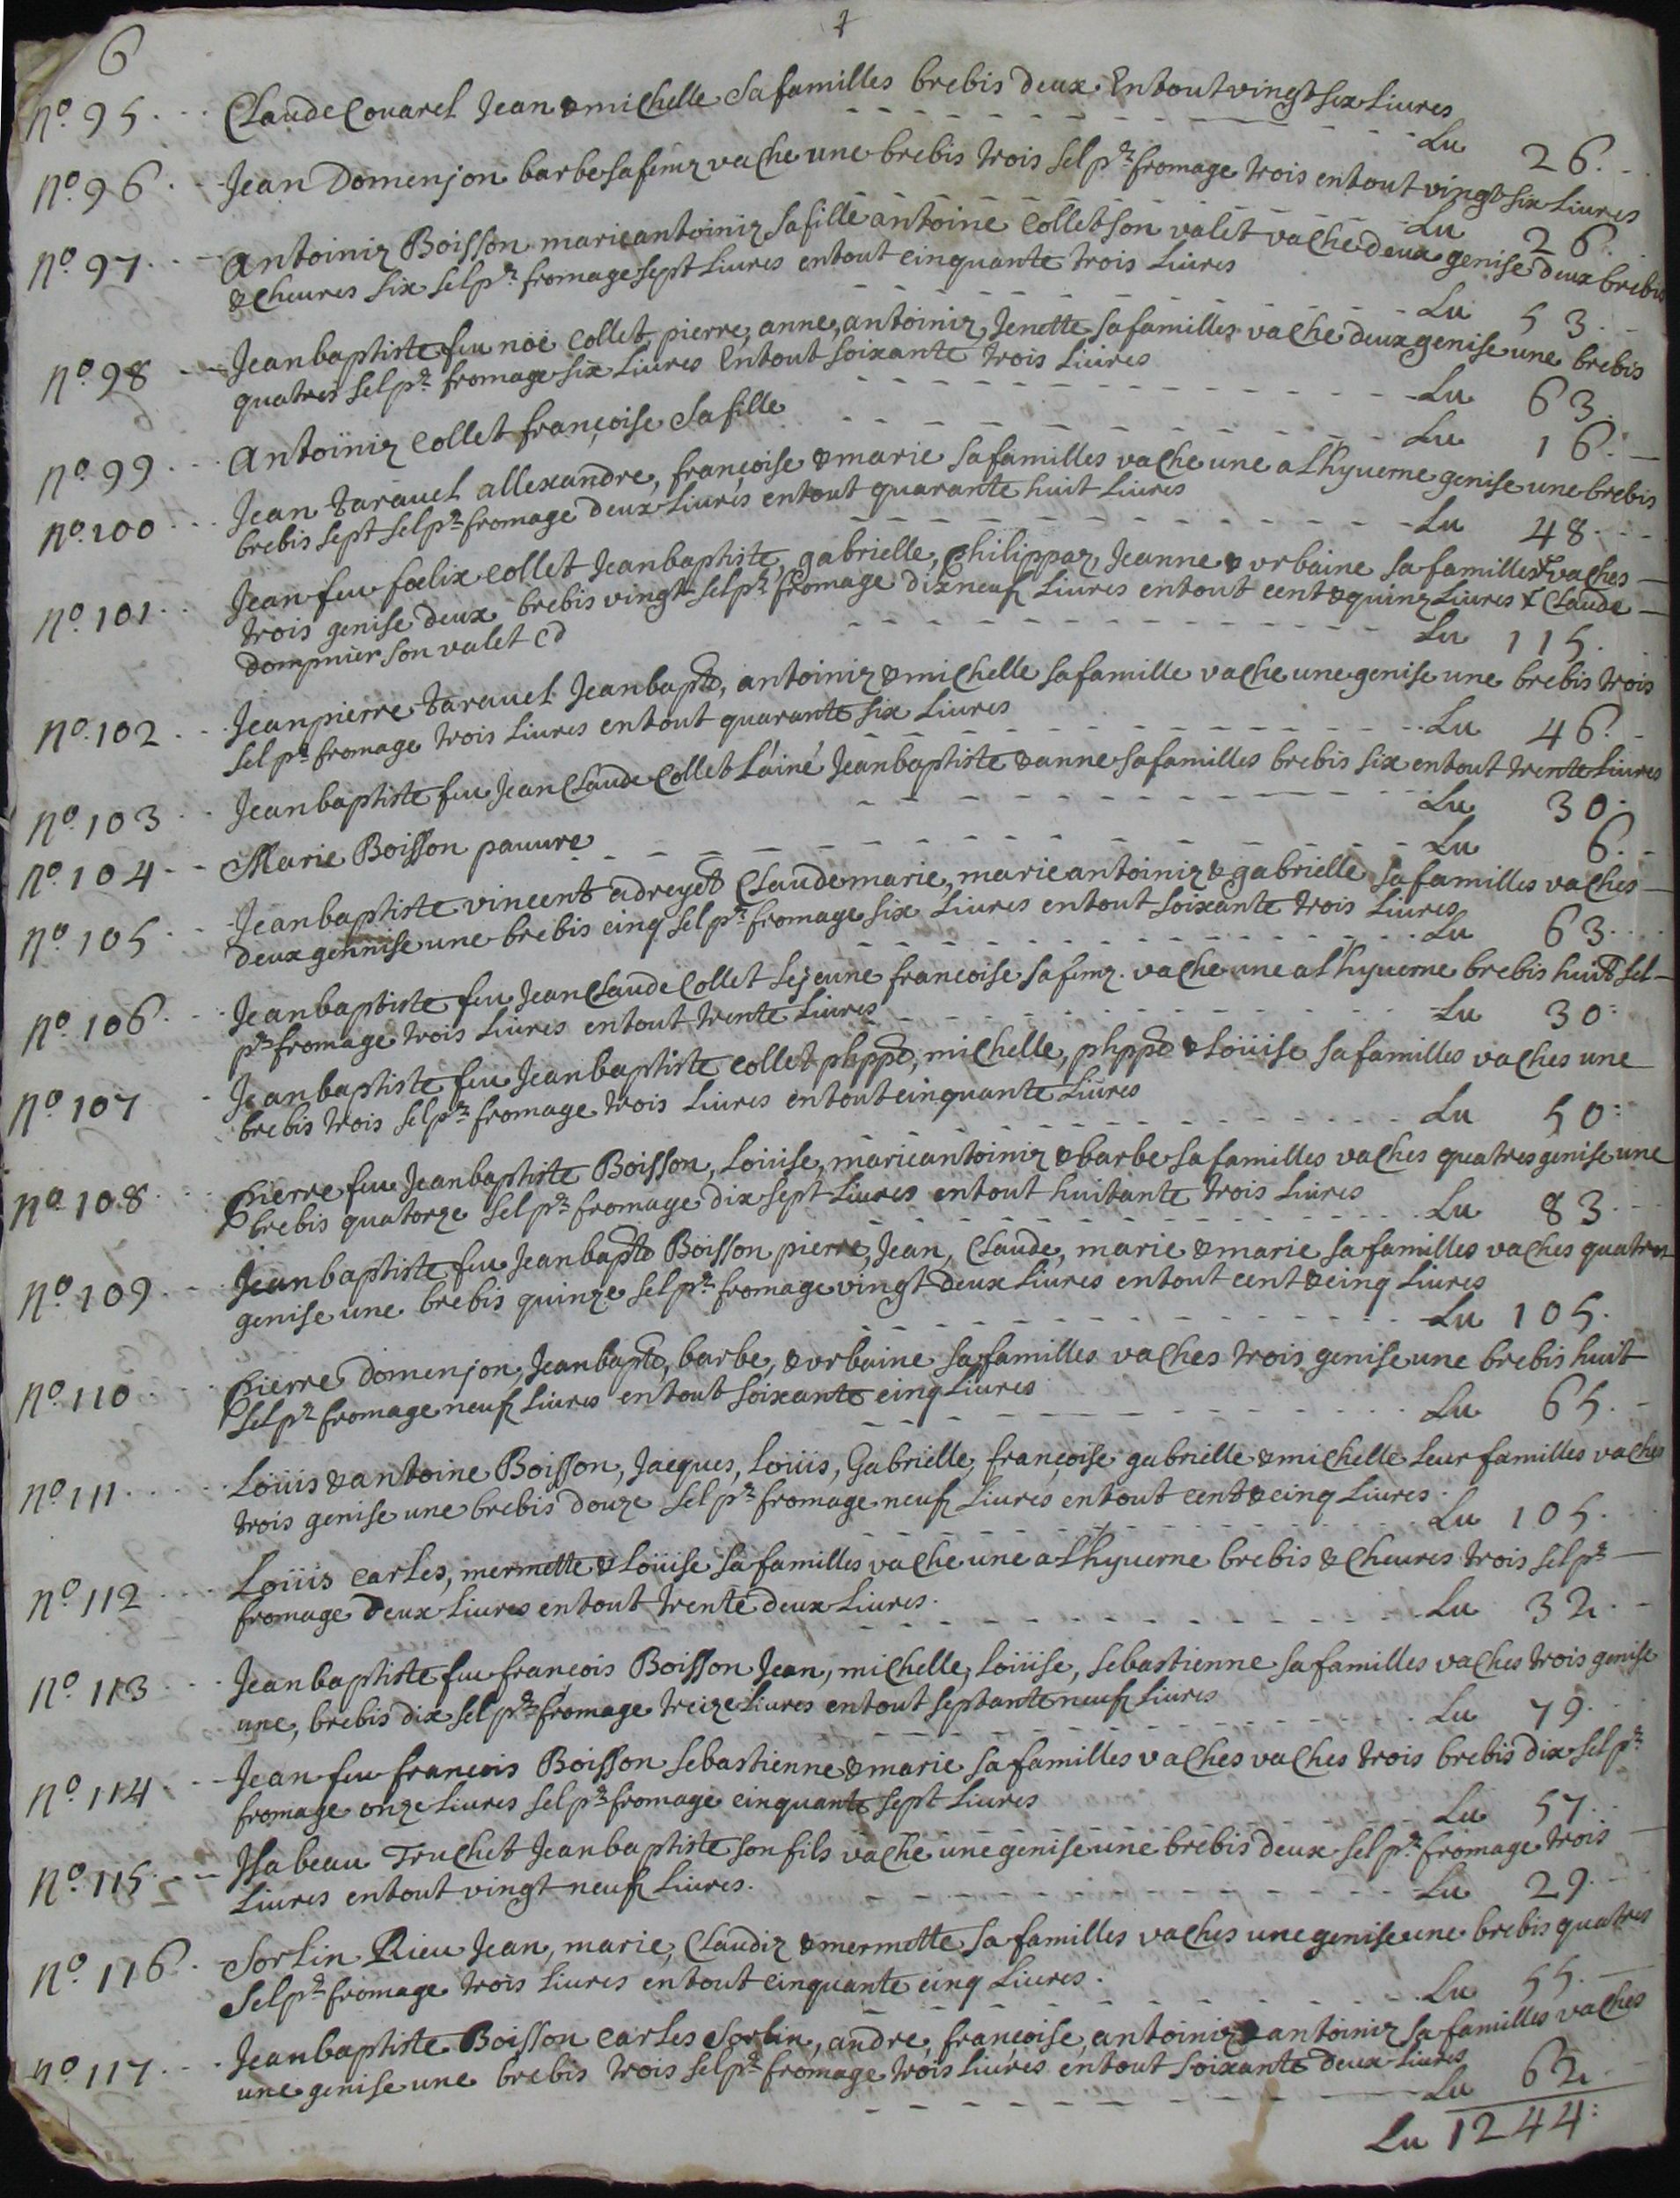 6
n.º 95 Claude Couarel Jean & michelle sa familles brebis deux. En tout vingt six Liures
Lu 26.
n.º 96 Jean Domenjon barbe sa femz vache une brebis trois sel pz fromage trois en tout vingt six Liures
Lu 26.
n.º 97 antoiniz Boisson marie antoiniz sa fille antoine Collet son valet vache deux genise deux brebis
& cheures six sel pz fromage sept Liures en tout cinquante trois Liures
Lu 53.
n.º 98 Jean baptiste feu noë Collet, pierre, anne, antoiniz, Jenette sa familles vache deux genise une brebis
quatres sel pz fromage six Liures En tout soixante trois Liures
Lu 63.
n.º 99 antoïniz Collet françoise sa fille
Lu 16.
n.º 100 Jean tarauel allexandre, françoise & marie sa familles vache une a Lhyuerne genise une brebis
brebis sept sel pz fromage deux Liures en tout quarante huit Liures
Lu 48.
n.º 101 Jean feu fœlix Collet Jean baptiste, gabrielle, Philippaz, Jeanne & vrbaine sa familles + vaches
trois genise deux brebis vingt sel pz fromage dix neuf Liures en tout cent & quinz Liures + Claude
dompnier son valet cd
Lu 115.
n.º 102 Jean pierre tarauel Jean baptê, antoiniz & michelle sa famille vache une genise une brebis trois
sel pz fromage trois Liures en tout quarante six Liures
Lu 46.
n.º 103 Jean baptiste feu Jean Claude Collet L'áiné Jean baptiste & anne sa familles brebis six en tout trente Liures
Lu 30.
n.º 104 Marie Boisson pauure
Lu 6.
n.º 105 Jean baptiste vincent adreyet Claude marie, marie antoiniz & gabrielle sa familles vaches
deux gennise une brebis cinq sel pz fromage six Liures en tout soixante trois Liures
Lu 63.
n.º 106 Jean baptiste feu Jean Claude Collet Le jeune francoise sa femz. vache une a Lhyuerne brebis huit sel
pz fromage trois Liures en tout trente Liures
Lu 30.
n.º 107 Jean baptiste feu Jean baptiste Collet phppê, michelle, phppê & Loüise sa familles vaches une
brebis trois sel pz fromage trois Liures en tout cinquante Liures
Lu 50.
n.º 108 Pierre feu Jean baptiste Boisson, Loüise, marie antoiniz & barbe sa familles vaches quatres genise une
brebis quatorze sel pz fromage dix sept Liures en tout huitante trois Liures
Lu 83.
n.º 109 Jean baptiste feu Jean baptê Boisson pierre, Jean, Claude, marie & marie sa familles vaches quatres
genise une brebis quinze sel pz fromage vingt deux Liures en tout cent & cinq Liures
Lu 105.
n.º 110 Pierre Domenjon, Jean baptê, barbe, & vrbaine sa familles vaches trois genise une brebis huit
sel pz fromage neuf Liures en tout soixante cinq Liures
Lu 65.
n.º 111 Loüis & antoine Boisson, Jacques, Loüis, Gabrielle, françoise gabrielle & michelle leur familles vaches
trois genise une brebis douze sel pz fromage neuf Liures en tout cent & cinq Liures.
Lu 105.
n.º 112 Loüis Carles, mermette & Loüise sa familles vache une a Lhyuerne brebis & cheures trois sel pz
fromage deux Liures en tout trente deux Liures.
Lu 32.
n.º 113 Jean baptiste feu françois Boisson Jean, michelle, Loüise, sebastienne sa familles vaches trois genise
une, brebis dix sel pz fromage treize Liures en tout septante neuf Liures
Lu 79.
n.º 114 Jean feu francois Boisson sebastienne & marie sa familles vaches vaches trois brebis dix sel pz
fromage onze Liures sel pz fromage cinquante sept Liures
Lu 57.
n.º 115 Isabeau Truchet Jean baptiste son fils vache une genise une brebis deux sel pz fromage trois
Liures en tout vingt neuf Liures.
Lu 29.
n.º 116 Sorlin Rieu Jean, marie, Claudiz & mermette sa familles vaches une genise une brebis quatres
Sel pz fromage trois Liures en tout cinquante cinq Liures.
Lu 55.
n.º 117 Jean baptiste Boisson Carles Sorlin, andre, françoise, antoiniz & antoiniz sa familles vaches
une genise une brebis trois sel pz fromage trois Liures en tout soixante deux Liures
Lu 62
Lu 1244